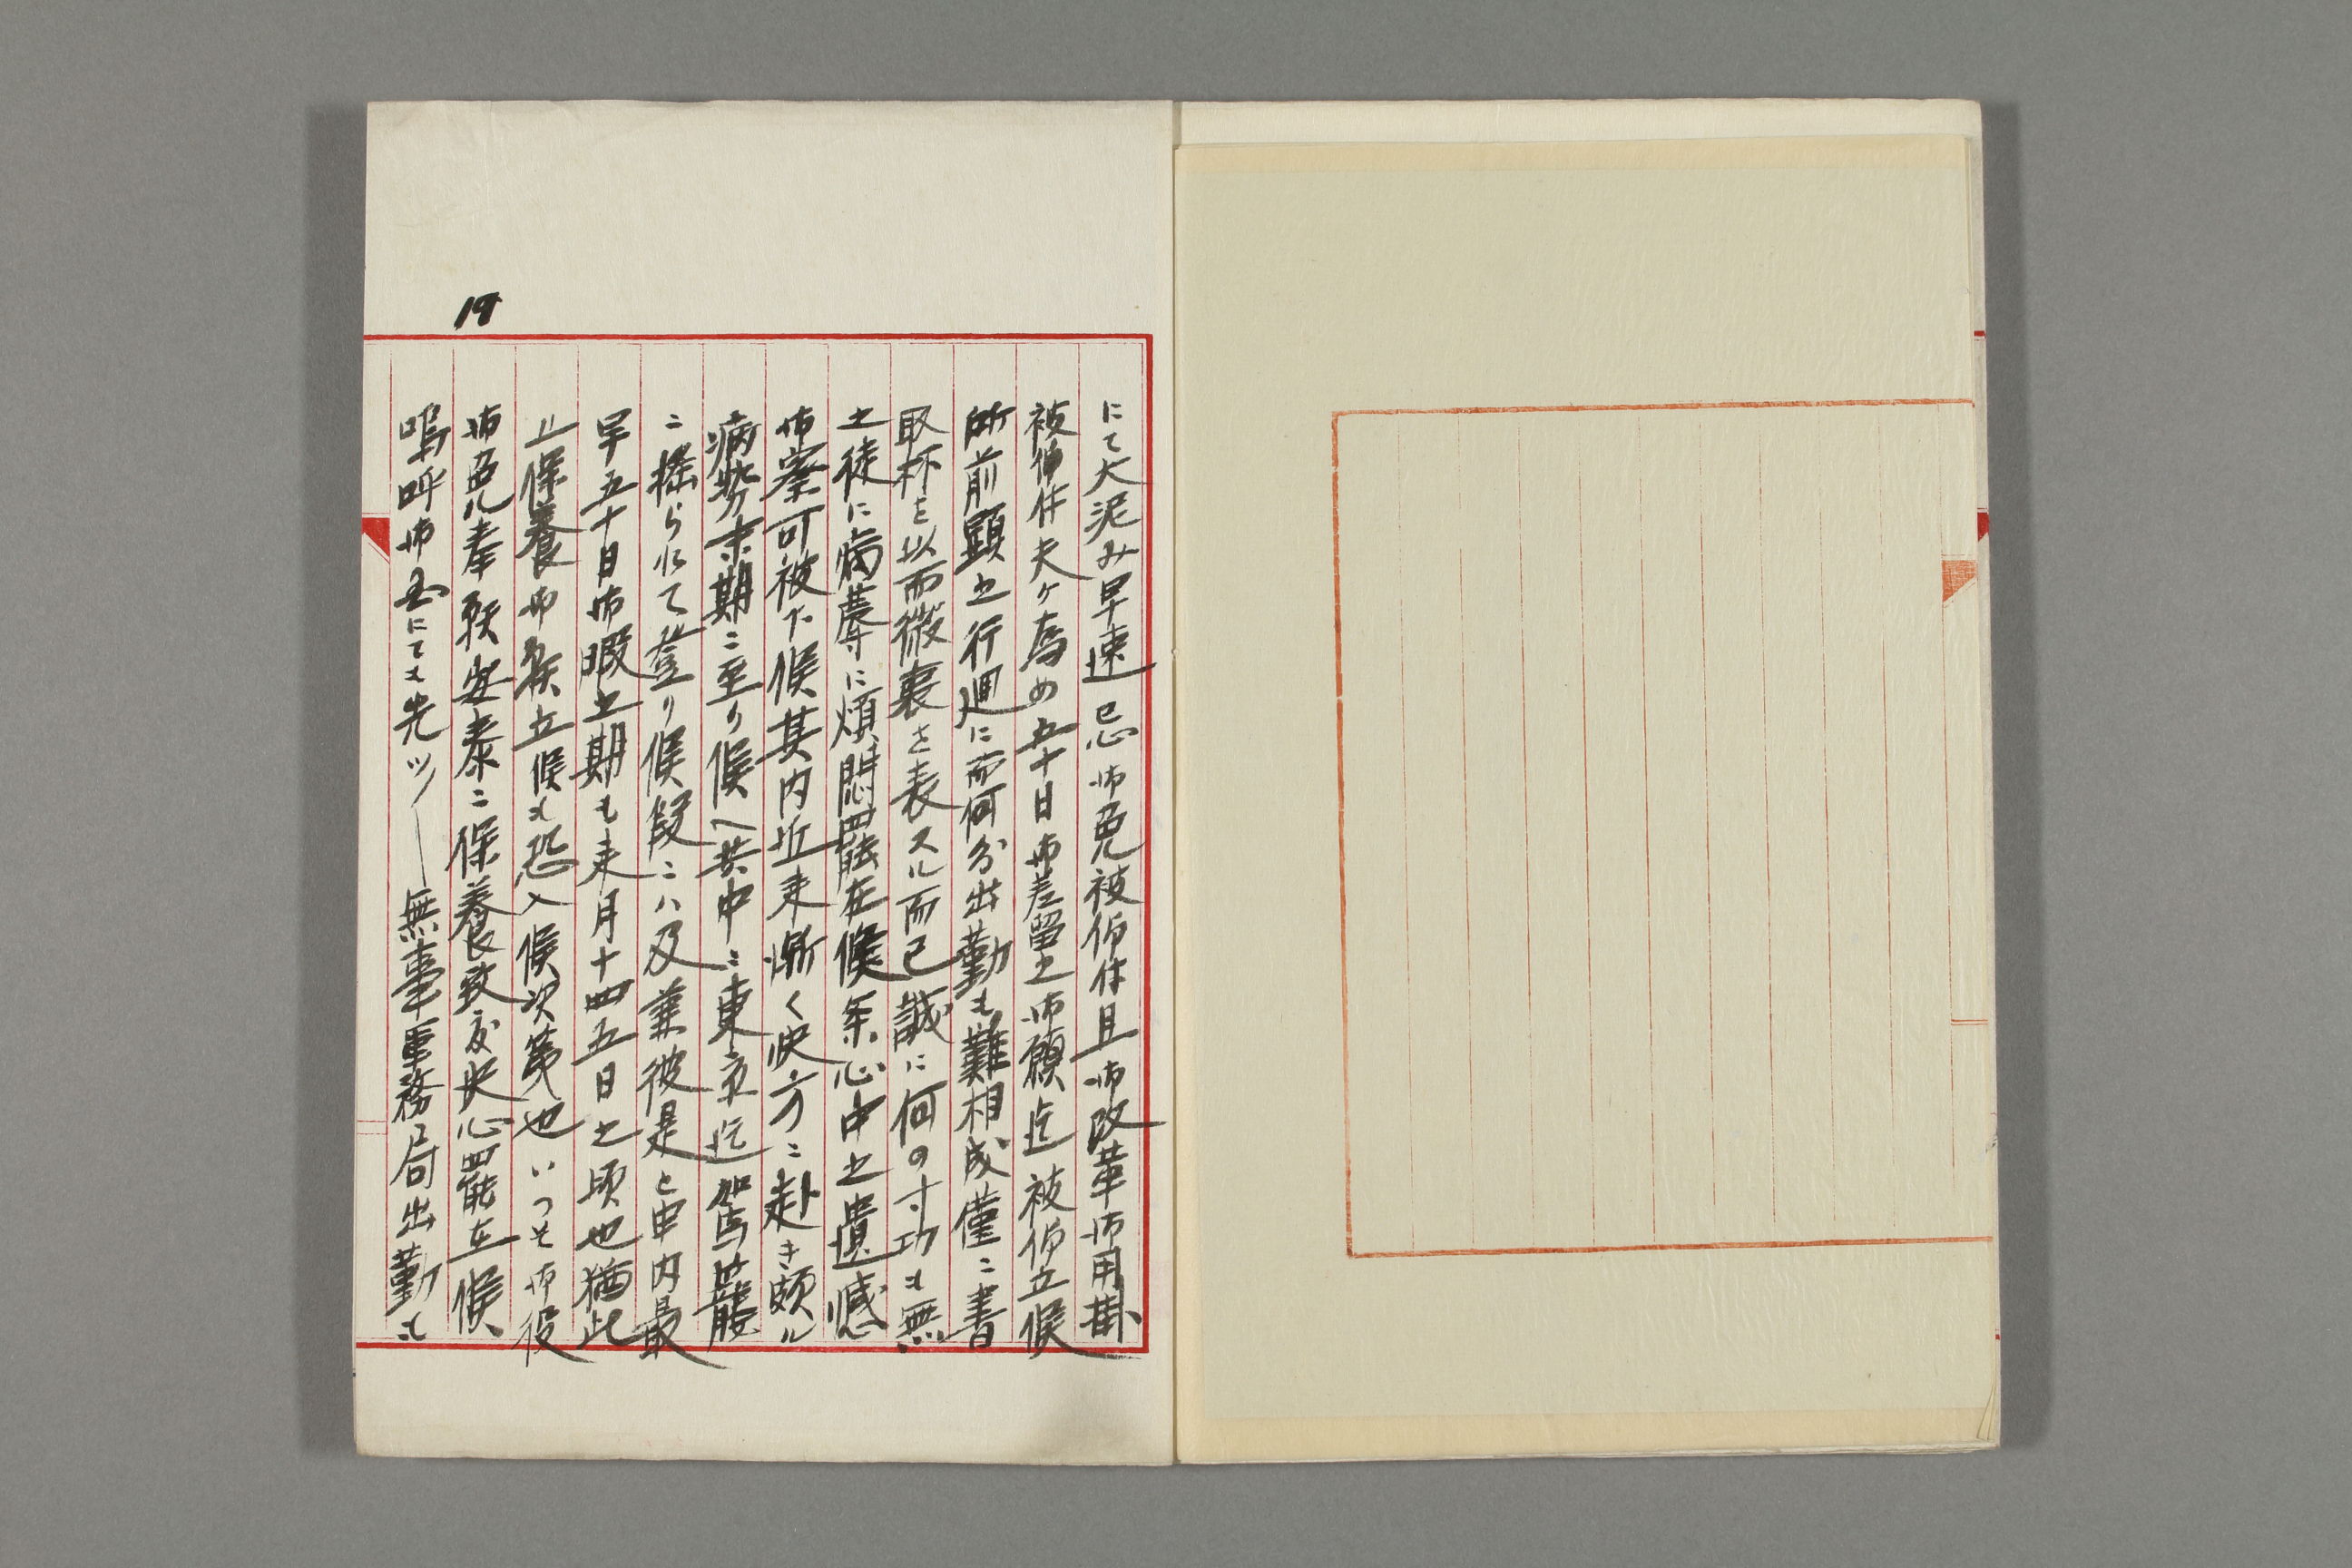 19
にて大泥み早速忌御免被仰付且御改革御用掛
被仰付夫ヶ為め五十日御差留之御願迄被仰立候
所前顕之行廻に而何分出勤も難相成僅ニ書
取杯を以而微衷を表スル而已誠に何の寸功も無
之徒に病蓐に煩悶罷在候条心中之遺憾
御察可被下候其内近来漸く快方ニ赴き頗ル
病勢末期ニ至り候へ共中々東京迄駕籠
ニ揺られて登り候段ニハ及兼彼是と申内最
早五十日御暇之期も来月十四五日之頃也猶此
上保養御願立候も恐入候次第也いつそ御役
御免ル奉願安泰ニ保養致度決心罷在候
嗚呼御国にても先ツ――無事事務局出勤も